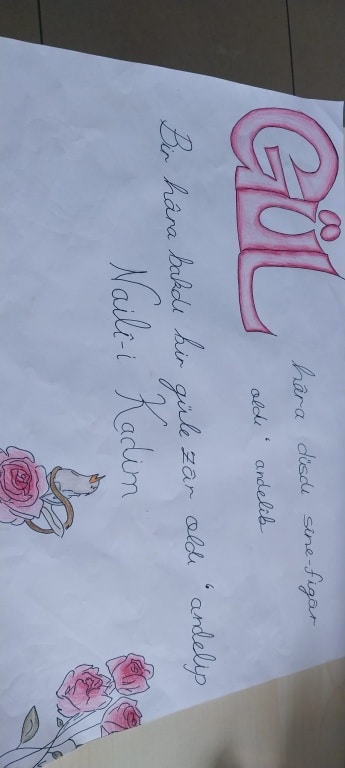 GÜL
hâra düşdi sine-figâr
oldı ‘andelib
Bir hâra bakdı bir güle zâr oldı ‘andelip
Naili-i Kadim